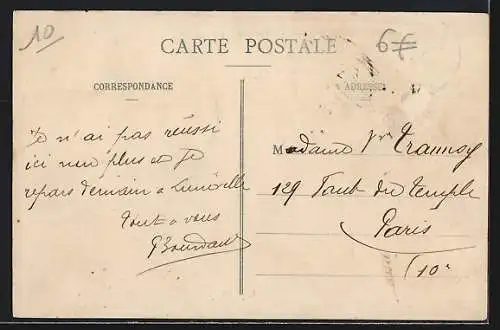 10
6F
CARTE POSTALE
CORRESPONDANCE
ADRESSE
Je n'ai pas réussi
ici non plus et je
repars demain à Lunéville
Tout à vous
GBourdau
Madame Vve Trannoy
129 Faubt du Temple
Paris
(10e